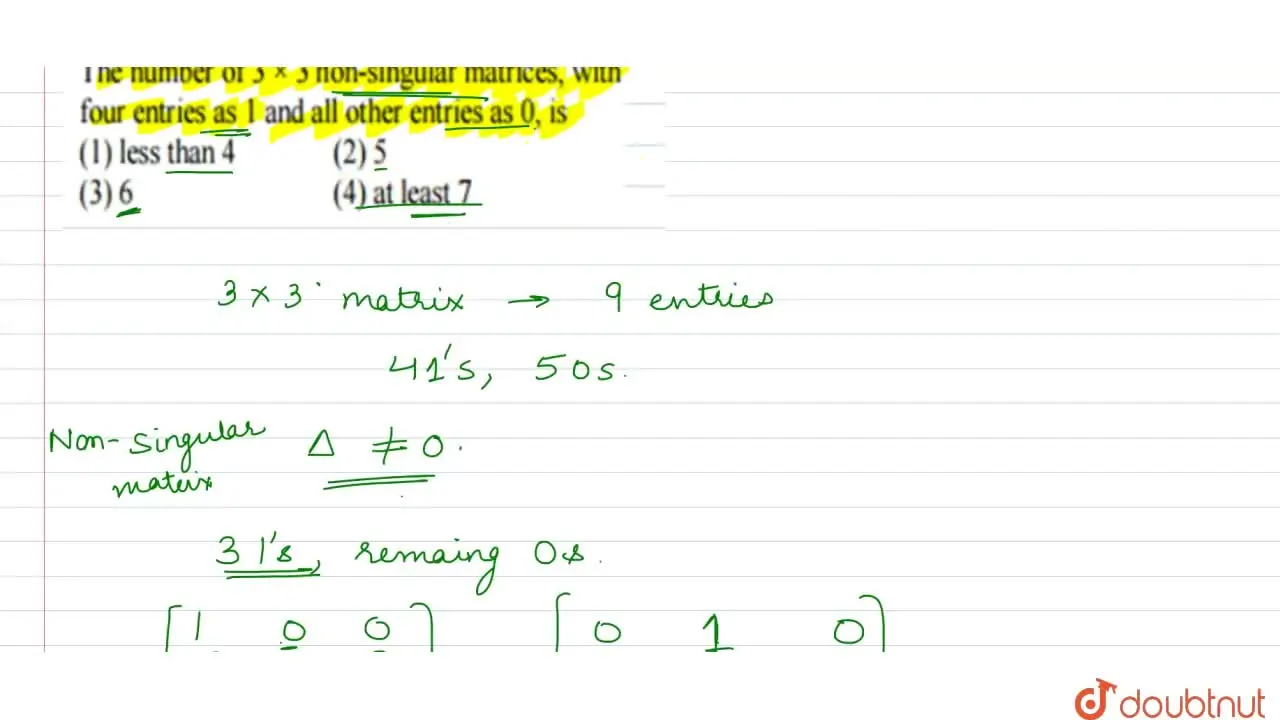 The number of 3 × 3 non-singular matrices, with
four entries as 1 and all other entries as 0, is
(1) less than 4 (2) 5
(3) 6 (4) at least 7
3 × 3 matrix → 9 entries
4 1's, 5 0s.
Non-singular matrix Δ ≠ 0.
3 1's, remaing 0s.
[1 0 0] [0 1 0]
doubtnut